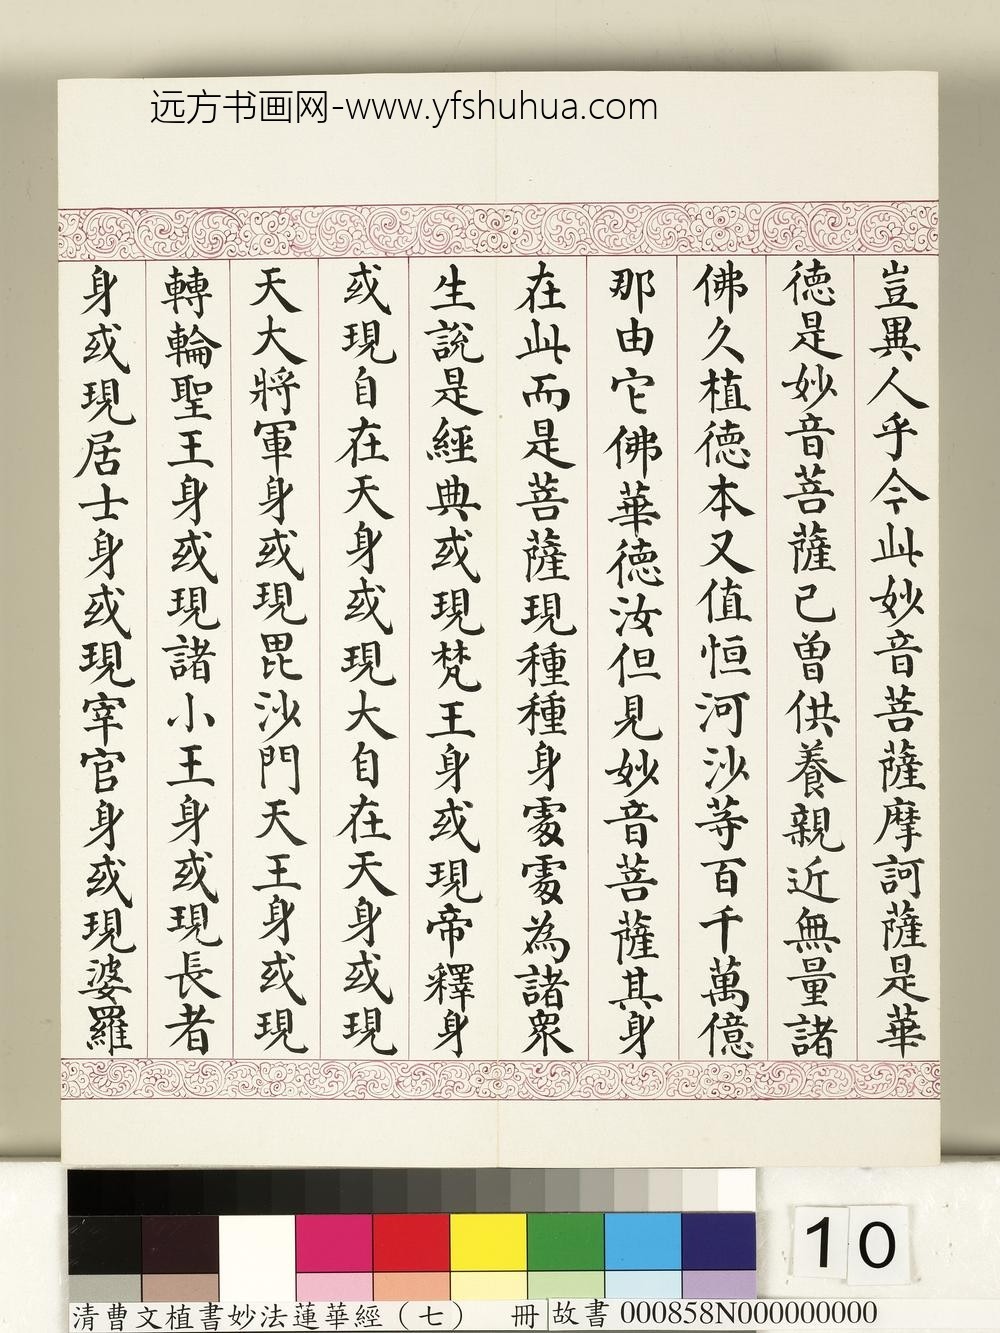 远方书画网-www.yfshuhua.com
豈異人乎今此妙音菩薩摩訶薩是華
德是妙音菩薩已曾供養親近無量諸
佛久植德本又值恒河沙等百千萬億
那由它佛華德汝但見妙音菩薩其身
在此而是菩薩現種種身處處為諸衆
生說是經典或現梵王身或現帝釋身
或現自在天身或現大自在天身或現
天大將軍身或現毘沙門天王身或現
轉輪聖王身或現諸小王身或現長者
身或現居士身或現宰官身或現婆羅
10
清曹文植書妙法蓮華經（七） 冊 故書 000858N000000000